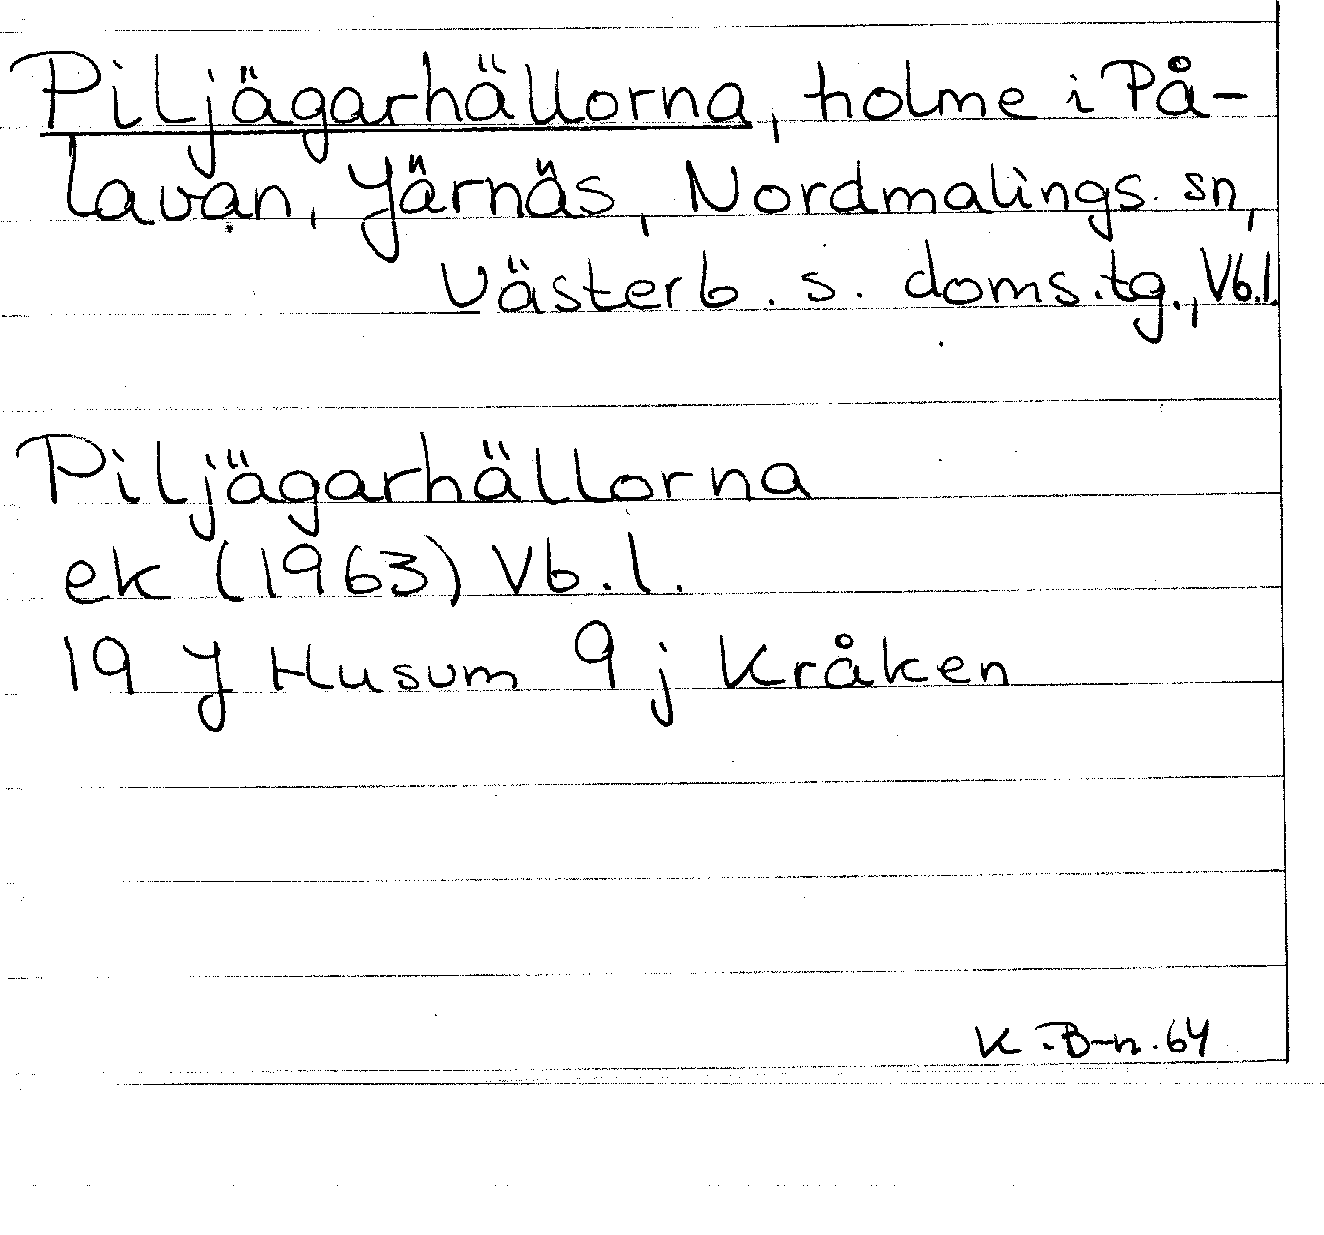 Piljägarhällorna, holme i På-
lavan, Järnäs, Nordmalings sn,
Västerb. s. doms.tg., Vb.l.
Piljägarhällorna
ek (1963) Vb.l.
19 J Husum 9 j Kråken
K.B-n.64